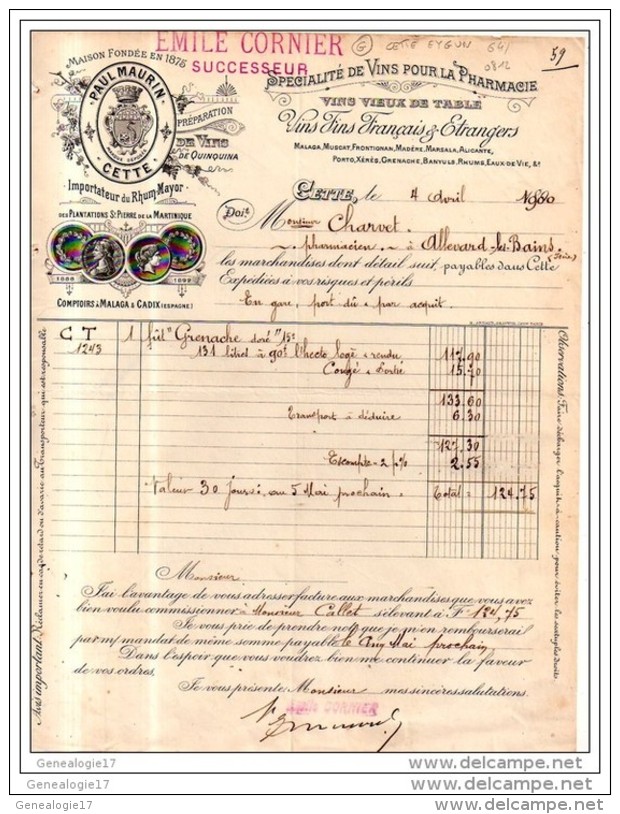 EMILE CORNIER
SUCCESSEUR
CETTE EYGUN 641
0812
59
MAISON FONDÉE EN 1875
PAUL MAURIN
MARQUE DÉPOSÉE
CETTE
PRÉPARATION
DE VINS
DE QUINQUINA
Importateur du Rhum Mayor
DES PLANTATIONS St PIERRE DE LA MARTINIQUE
1888 1892
COMPTOIRS A MALAGA & CADIX (ESPAGNE)
SPECIALITÉ DE VINS POUR LA PHARMACIE
VINS VIEUX DE TABLE
Vins Fins Français & Etrangers
MALAGA, MUSCAT, FRONTIGNAN, MADÈRE, MARSALA, ALICANTE,
PORTO, XÉRÈS, GRENACHE, BANYULS, RHUMS, EAUX-DE-VIE, &a
CETTE, le 4 Avril
Doit
Monsieur Charvet.
pharmacien à Allevard-les-Bains.
(Isère)
les marchandises dont détail suit, payables dans Cette
Expédiées à vos risques et périls
En gare, port dû & par acquit.
C T 1 fût Grenache doré 15°
1243 131 litres à 90f l'hecto logé & rendu 117.90
Congé & Sortie 15.70
133.60
Transport à déduire 6.30
127.30
Escompte 2 % 2.55
Valeur 30 jours, au 5 Mai prochain. Total = 124.75
Avis important. Réclamer en cas de retard ou d'avarie au Transporteur qui est responsable
Observations. Faire décharger l'acquit-à-caution pour éviter les doubles droits.
Monsieur
J'ai l'avantage de vous adresser facture aux marchandises que vous avez
bien voulu commissionner à Monsieur Callet s'élevant à F 124,75
Je vous prie de prendre note que je m'en rembourserai
par m/ mandat de même somme payable le Cinq Mai prochain
Dans l'espoir que vous voudrez bien me continuer la faveur
de vos ordres.
Je vous présente Monsieur mes sincères salutations.
Emile CORNIER
Genealogie17 www.delcampe.net
Genealogie17 www.delcampe.net
Genealogie17 www.delcampe.net